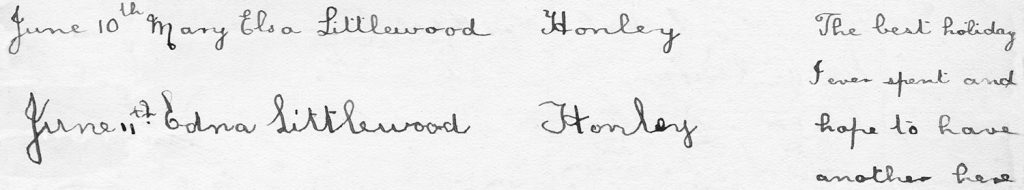 June 10th Mary Elsa Littlewood Honley The best holiday
I ever spent and
June 11th Edna Littlewood Honley hope to have
another here